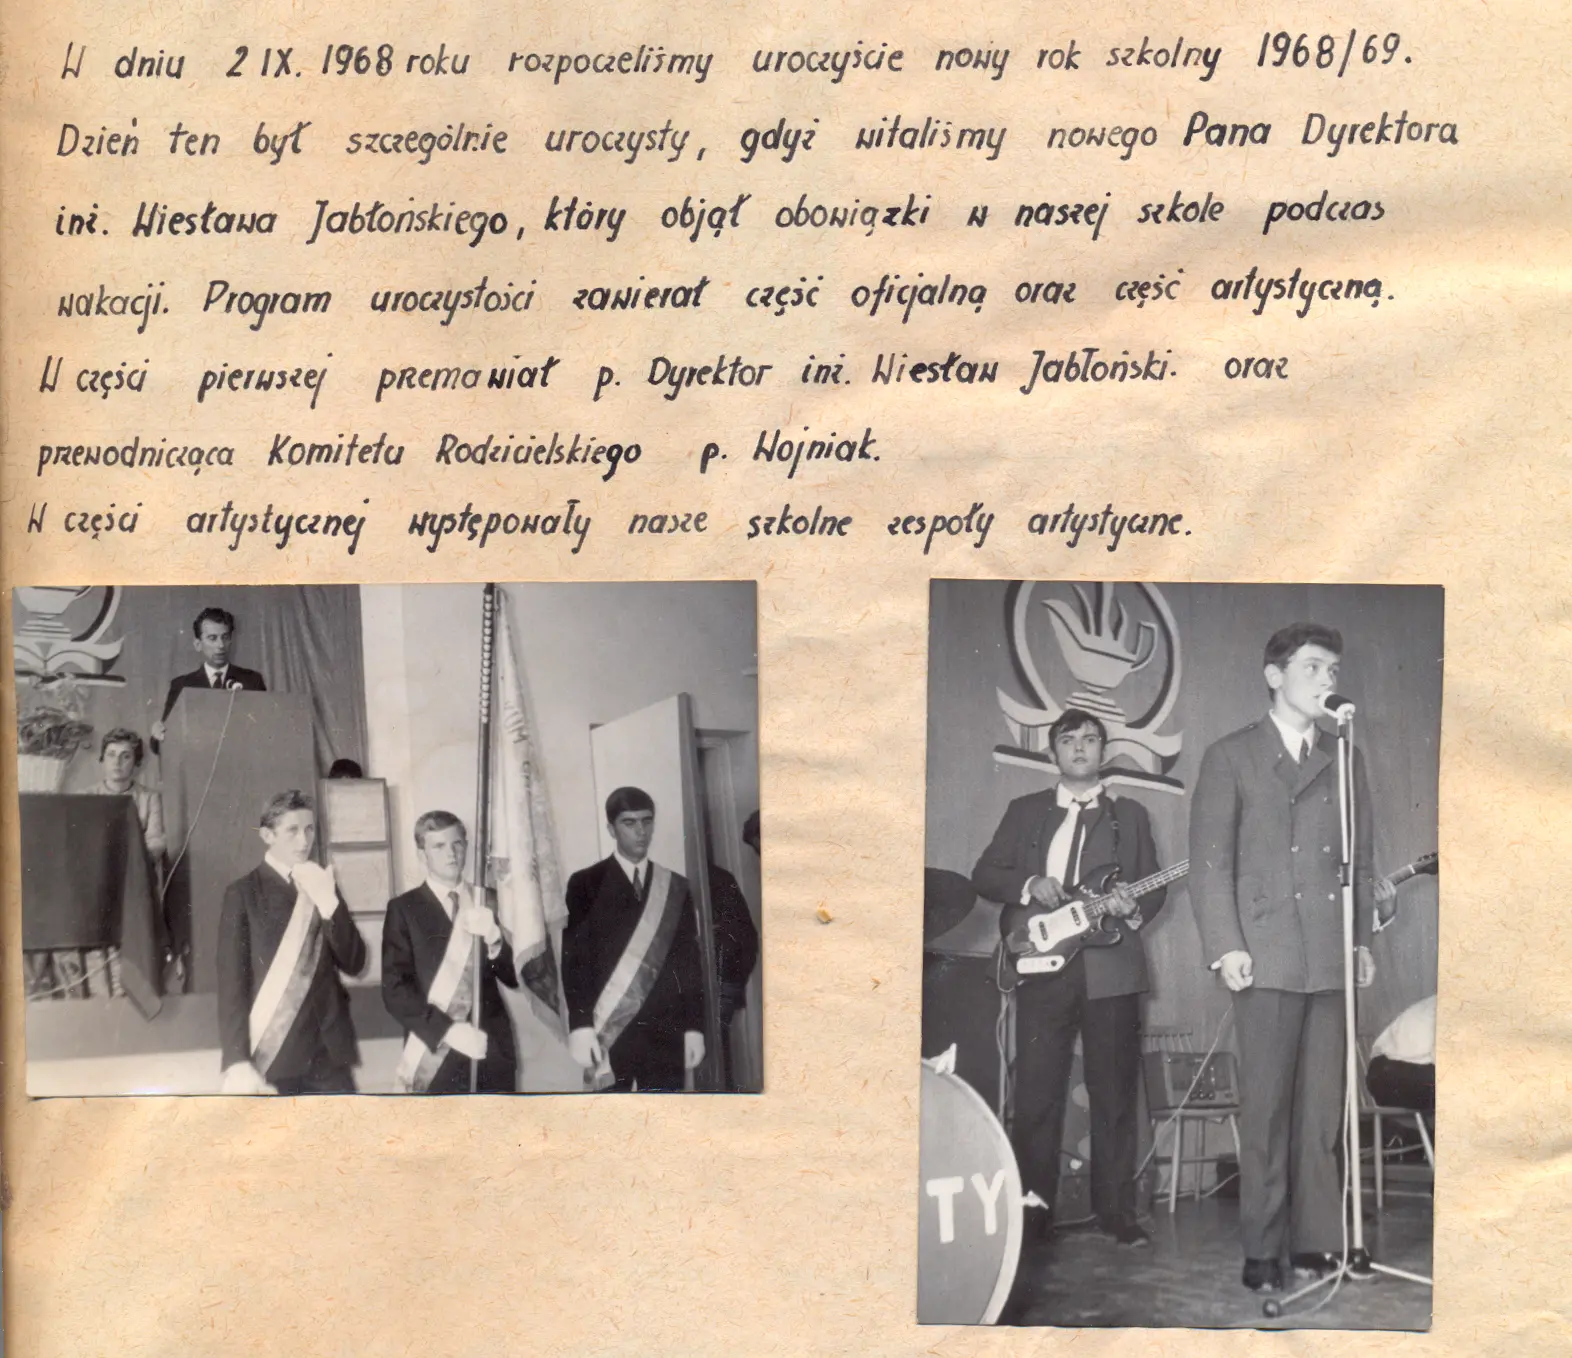 W dniu 2 IX. 1968 roku rozpoczeliśmy uroczyście nowy rok szkolny 1968/69.
Dzień ten był szczególnie uroczysty, gdyż witaliśmy nowego Pana Dyrektora
inż. Wiesława Jabłońskiego, który objął obowiązki w naszej szkole podczas
wakacji. Program uroczystości zawierał część oficjalną oraz część artystyczną.
W części pierwszej przemawiał p. Dyrektor inż. Wiesław Jabłoński. oraz
przewodnicząca Komitetu Rodzicielskiego p. Wojniak.
W części artystycznej występowały nasze szkolne zespoły artystyczne.
TY